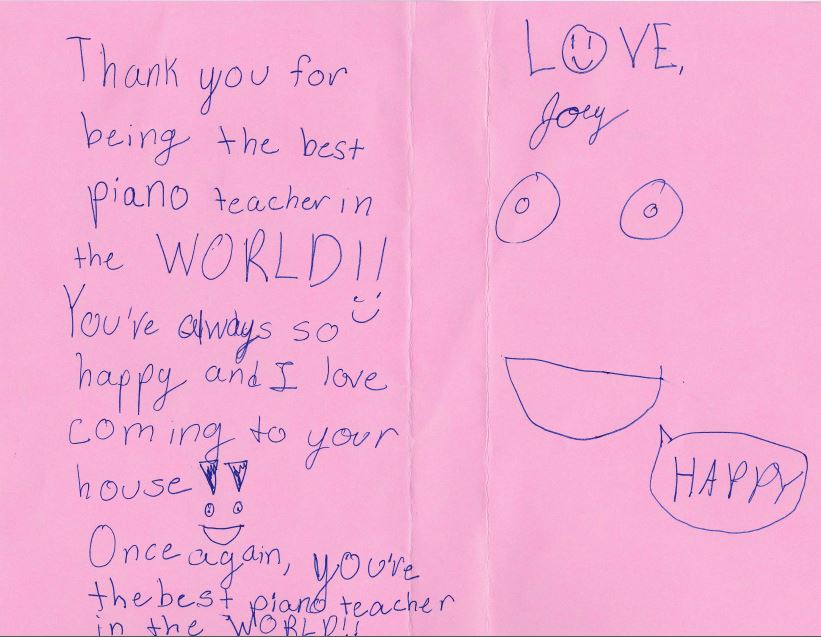 Thank you for
being the best
piano teacher in
the WORLD!!
You've always so
happy and I love
coming to your
house!!
Once again, you're
the best piano teacher
in the WORLD!!
LOVE,
Joey
HAPPY